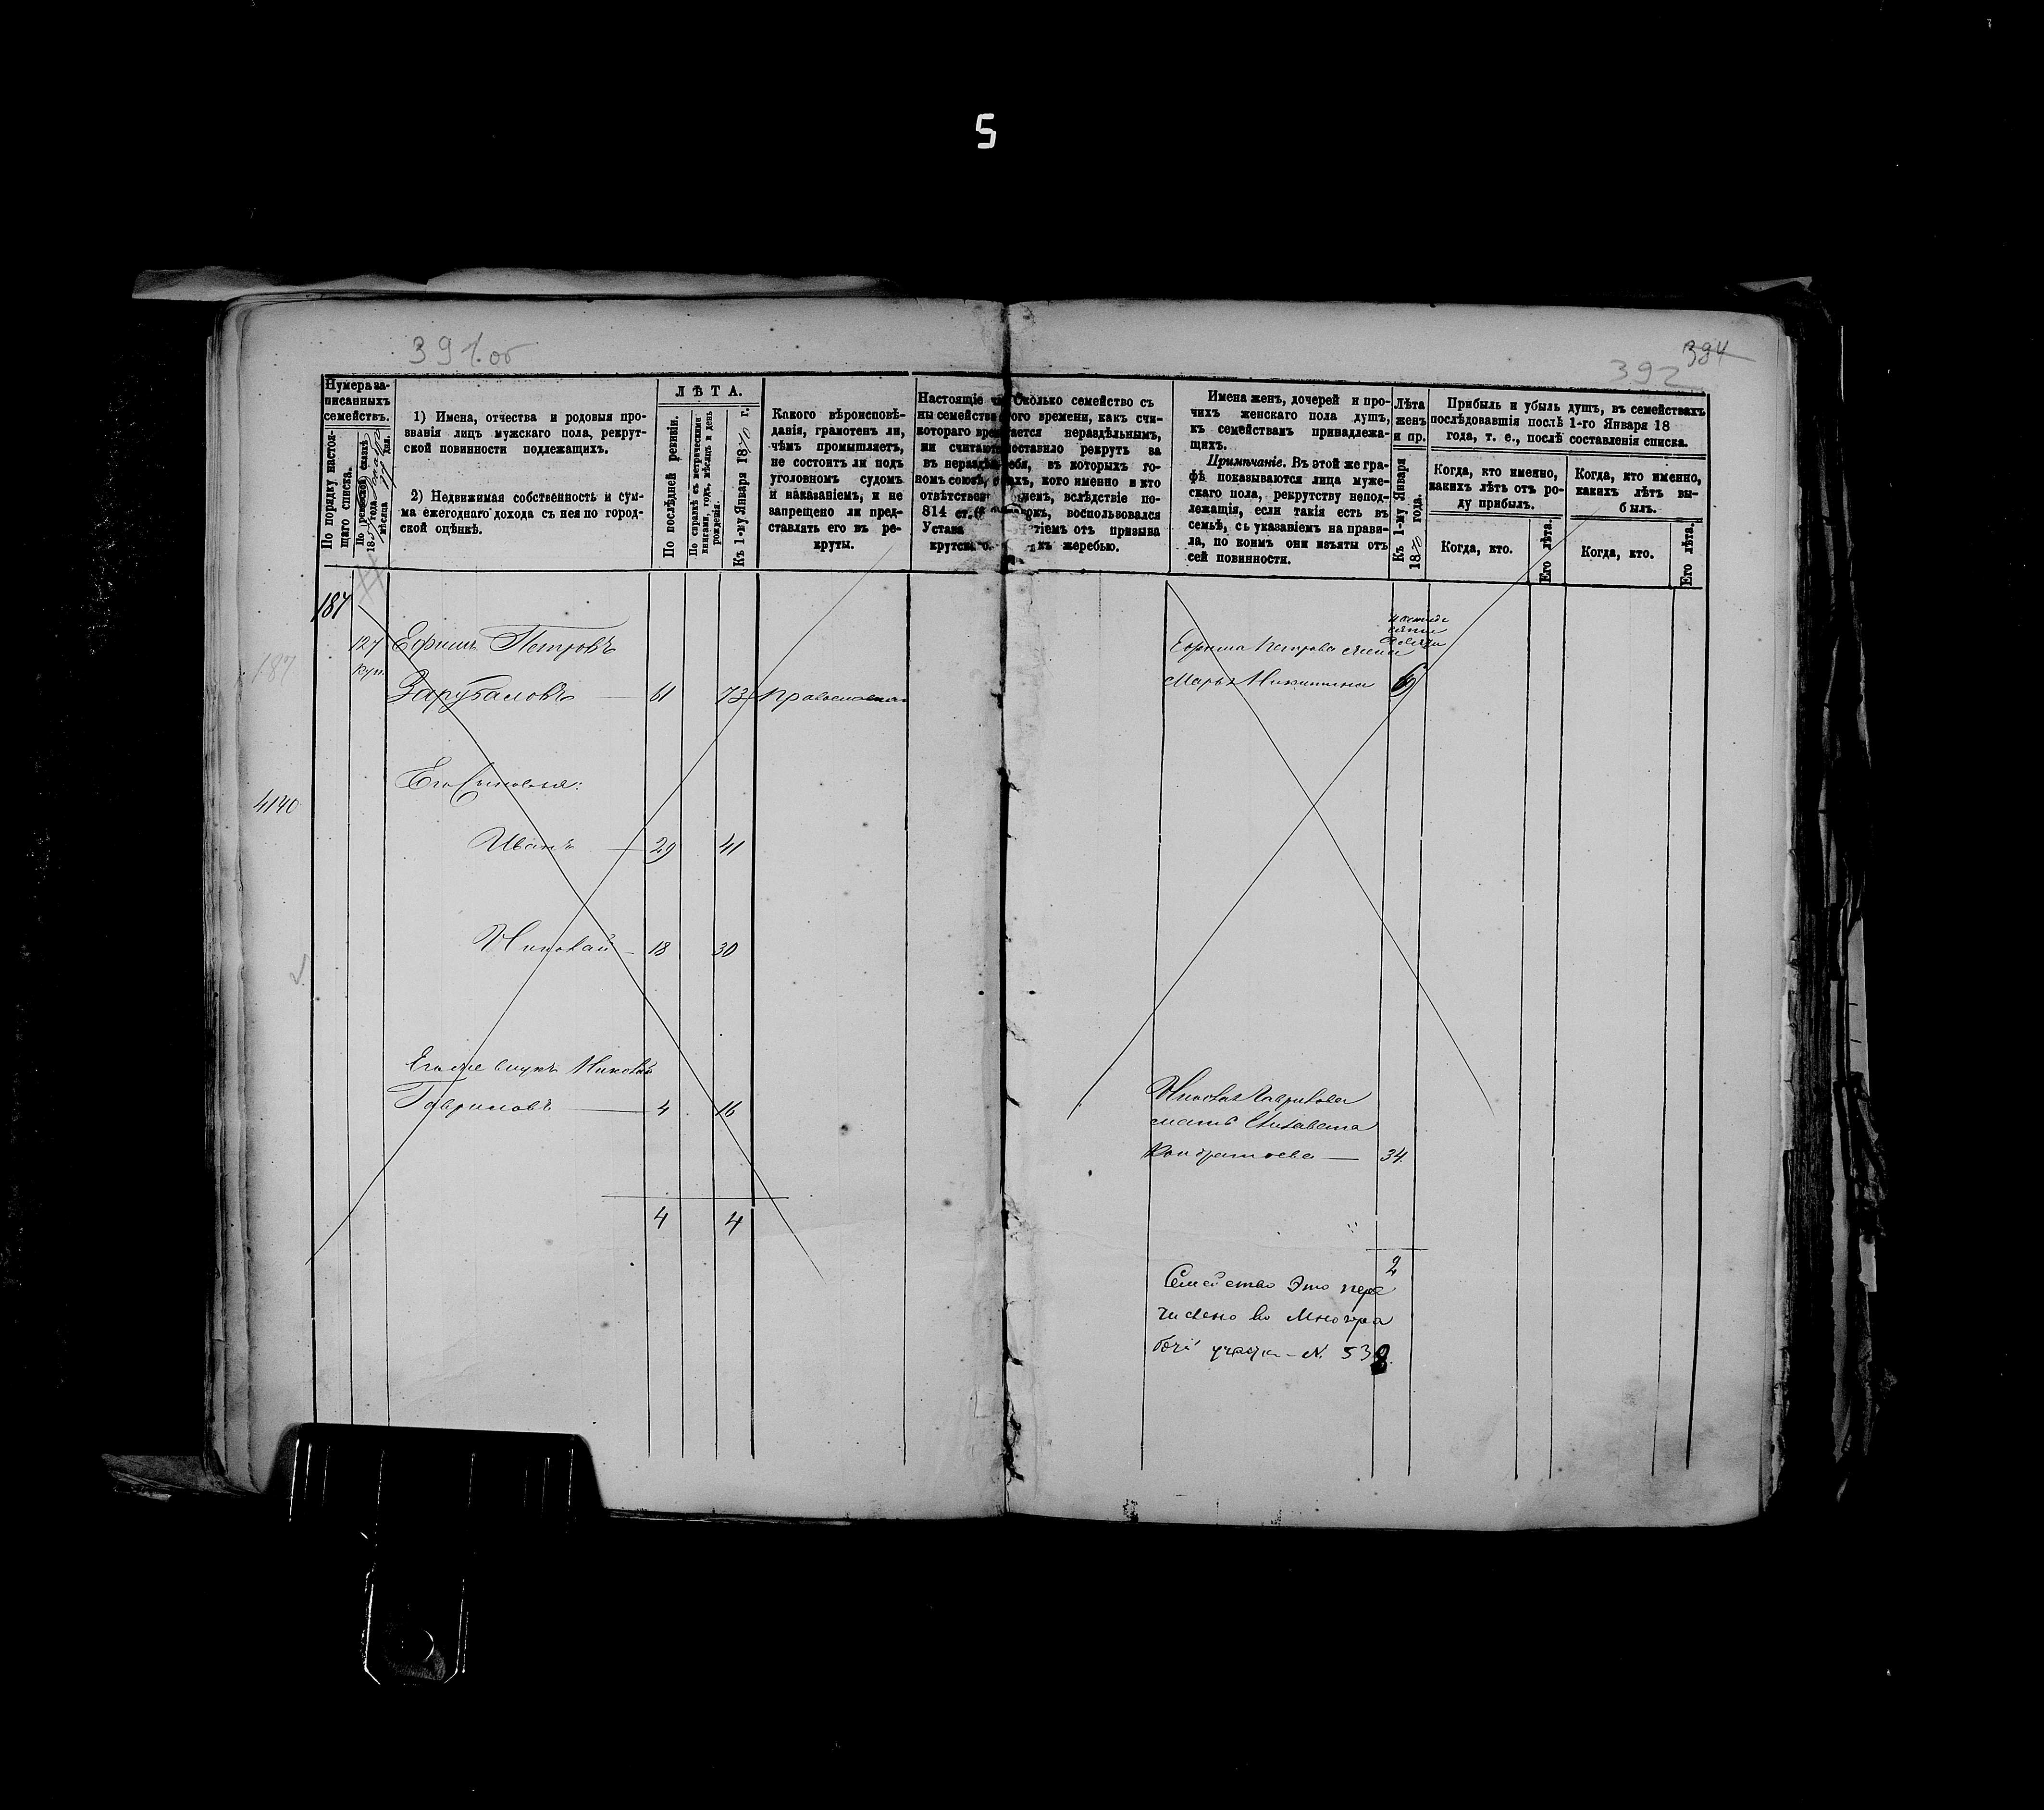 5
391 об
394
392
Нумера за-
писанныхъ
семействъ.
По порядку настоя-
щаго списка.
По ревизской сказкѣ
18 года
мѣсяца дня.
1) Имена, отчества и родовыя про-
званія лицъ мужскаго пола, рекрут-
ской повинности подлежащихъ.
2) Недвижимая собственность и сум-
ма ежегоднаго дохода съ нея по город-
ской оцѣнкѣ.
ЛѢТА.
По послѣдней ревизіи.
По справкѣ съ метрическими
книгами, годъ, мѣсяцъ и день
рожденія.
Къ 1-му Января 1870 г.
Какого вѣроисповѣ-
данія, грамотенъ ли,
чѣмъ промышляетъ,
не состоитъ ли подъ
уголовномъ судомъ
и наказаніемъ, и не
запрещено ли пред-
ставлять его въ ре-
круты.
Настоящіе
ны семейства
котораго
ни считают
въ нераздѣ
номъ союзѣ,
отвѣтствен
814 ст.
Устава
крутск
Сколько семейство съ
того времени, какъ счи-
тается нераздѣльнымъ,
поставило рекрутъ за
себя, въ которыхъ го-
дахъ, кого именно и кто
вслѣдствіе по-
воспользовался
тіемъ отъ призыва
къ жеребью.
Имена женъ, дочерей и про-
чихъ женскаго пола душъ,
къ семействамъ принадлежа-
щихъ.
Примѣчаніе. Въ этой же гра-
фѣ показываются лица муже-
скаго пола, рекрутству непод-
лежащія, если такія есть въ
семьѣ, съ указаніемъ на прави-
ла, по коимъ они изъяты отъ
сей повинности.
Лѣта
женъ
и пр.
Къ 1-му Января
1870 года.
Прибыль и убыль душъ, въ семействахъ
послѣдовавшія послѣ 1-го Января 18
года, т. е., послѣ составленія списка.
Когда, кто именно,
какихъ лѣтъ отъ ро-
ду прибылъ.
Когда, кто именно,
какихъ лѣтъ вы-
былъ.
Когда, кто.
Его лѣта.
Когда, кто.
Его лѣта.
187
187
4140
127
куп.
Ефимъ Петровъ
Зарубаловъ 61 73 Православн
Его Сыновья:
Иванъ 29 41
Николай 18 30
Его же внукъ Николай
Гавриловъ 4 16
4 4
Ефима Петрова жена
Марья Никитина 69
Николая Гаврилова
мать Елизавета
Кондратьева 34
2
Семейство Это пере
числено во Многора
бочій участ N. 538